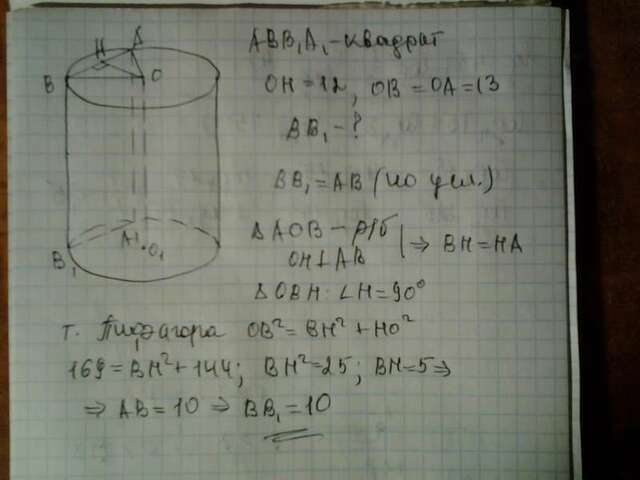 ABB₁A₁ - квадрат
OH = 12, OB = OA = 13
BB₁ - ?
BB₁ = AB (по усл.)
Δ AOB - р/б
OH ⊥ AB | ⇒ BH = HA
Δ OBH: ∠H = 90°
т. Пифагора OB² = BH² + HO²
169 = BH² + 144; BH² = 25; BH = 5 ⇒
⇒ AB = 10 ⇒ BB₁ = 10
H A
B O
A₁
O₁
B₁